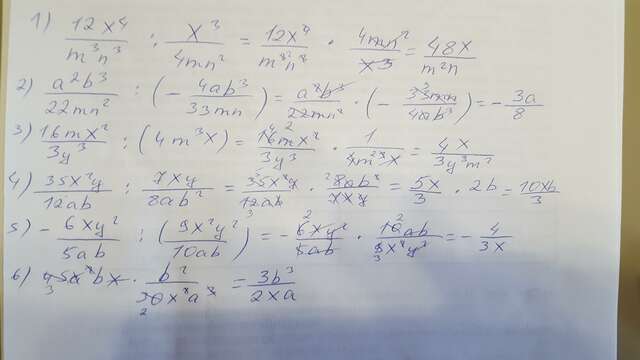 1) 12x⁴/m³n³ : x³/4mn² = 12x⁴/m³n³ · 4mn²/x³ = 48x/m²n
2) a²b³/22mn² : (− 4ab³/33mn) = a²b³/22mn² · (− 33mn/4ab³) = − 3a/8
3) 16mx²/3y³ : (4m³x) = 16mx²/3y³ · 1/4m³x = 4x/3y³m²
4) 35x²y/12ab : 7xy/8ab² = 35x²y/12ab · 8ab²/7xy = 5x/3 · 2b = 10xb/3
5) − 6xy²/5ab : (9x²y²/10ab) = − 6xy²/5ab · 10ab/9x²y² = − 4/3x
6) 45a²bx · b²/30x²a³ = 3b³/2xa